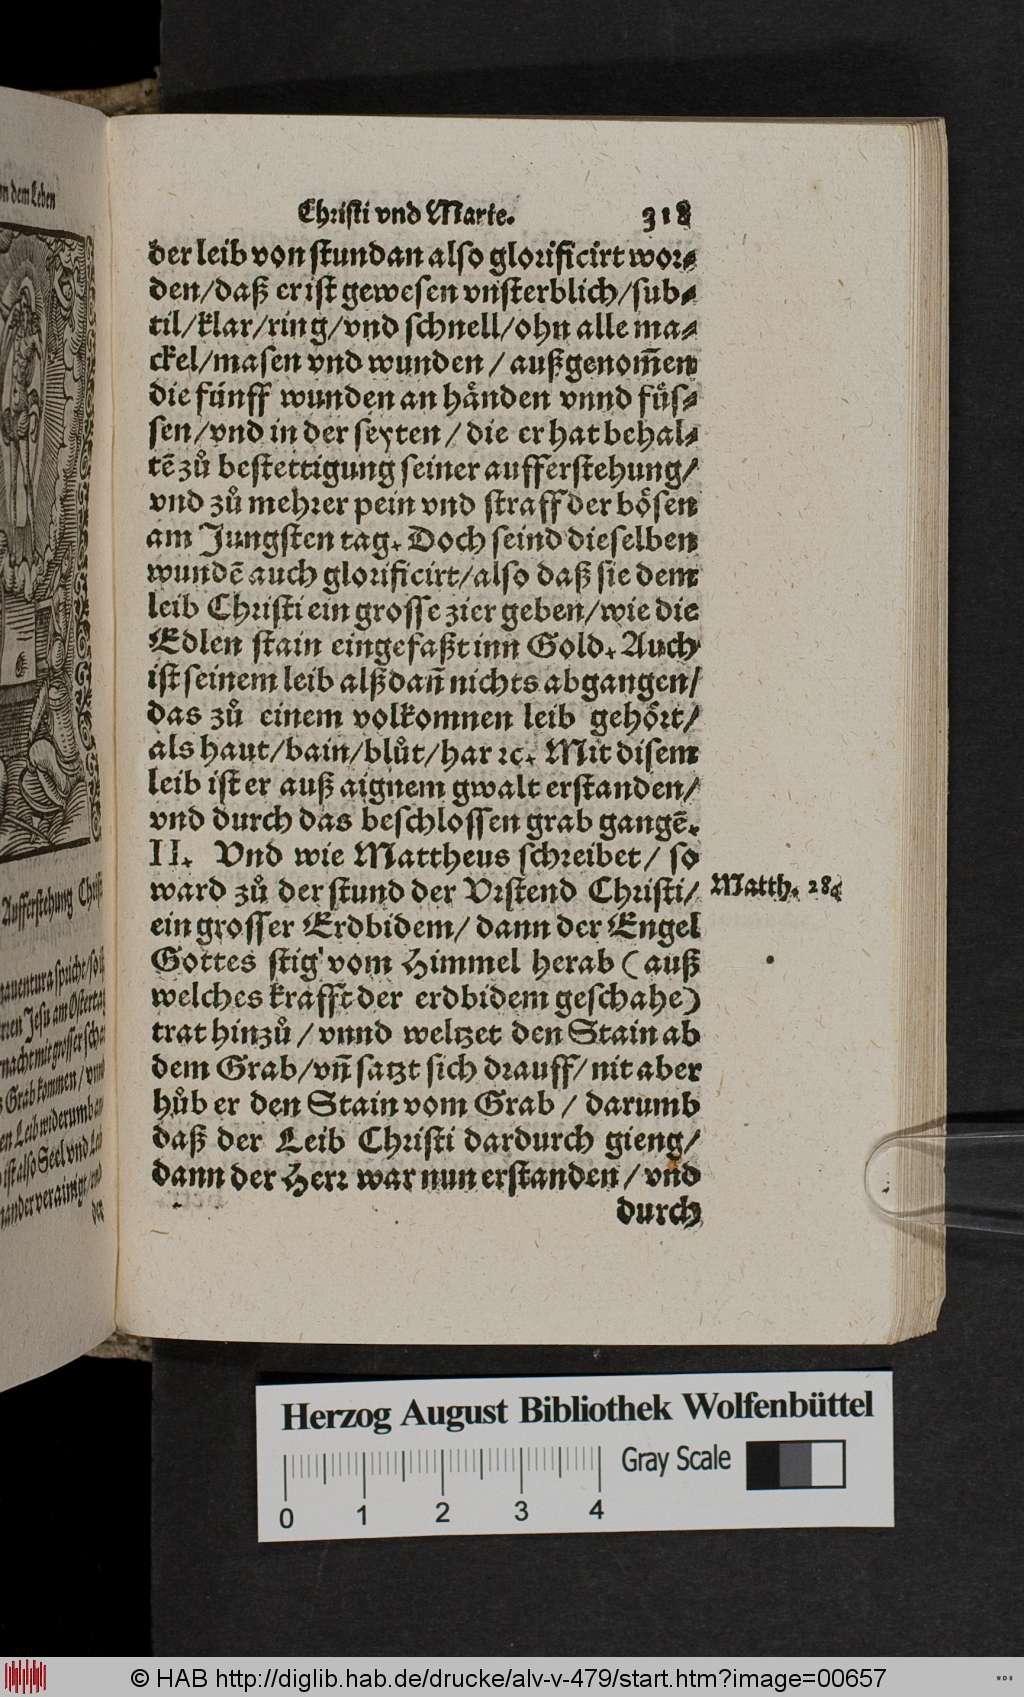 on dem Leben
Aufferstehung Christi
Christi vnd Marie. 318
der leib von stundan also glorificirt wor-
den/daß er ist gewesen vnsterblich/sub-
til/klar/ring/vnd schnell/ohn alle ma-
ckel/masen vnd wunden / außgenom̃en
die fünff wunden an hånden vnnd füs-
sen/vnd in der seyten / die er hat behal-
tẽ zů bestettigung seiner aufferstehung/
vnd zů mehrer pein vnd straff der bösen
am Jungsten tag. Doch seind dieselben
wundẽ auch glorificirt/also daß sie dem
leib Christi ein grosse zier geben/wie die
Edlen stain eingefaßt inn Gold. Auch
ist seinem leib alßdañ nichts abgangen/
das zů einem volkomnen leib gehört/
als haut/bain/blůt/har ꝛc. Mit disem
leib ist er auß aignem gwalt erstanden/
vnd durch das beschlossen grab gangẽ.
II. Vnd wie Mattheus schreibet/ so
ward zů der stund der Vrstend Christi/ Matth. 28.
ein grosser Erdbidem/ dann der Engel
Gottes stig vom Himmel herab (auß
welches krafft der erdbidem geschahe)
trat hinzů / vnnd weltzet den Stain ab
dem Grab/vñ satzt sich drauff/ nit aber
hůb er den Stain vom Grab / darumb
daß der Leib Christi dardurch gieng/
dann der Herr war nun erstanden / vnd
durch
Herzog August Bibliothek Wolfenbüttel
Gray Scale
0 1 2 3 4
© HAB http://diglib.hab.de/drucke/alv-v-479/start.htm?image=00657